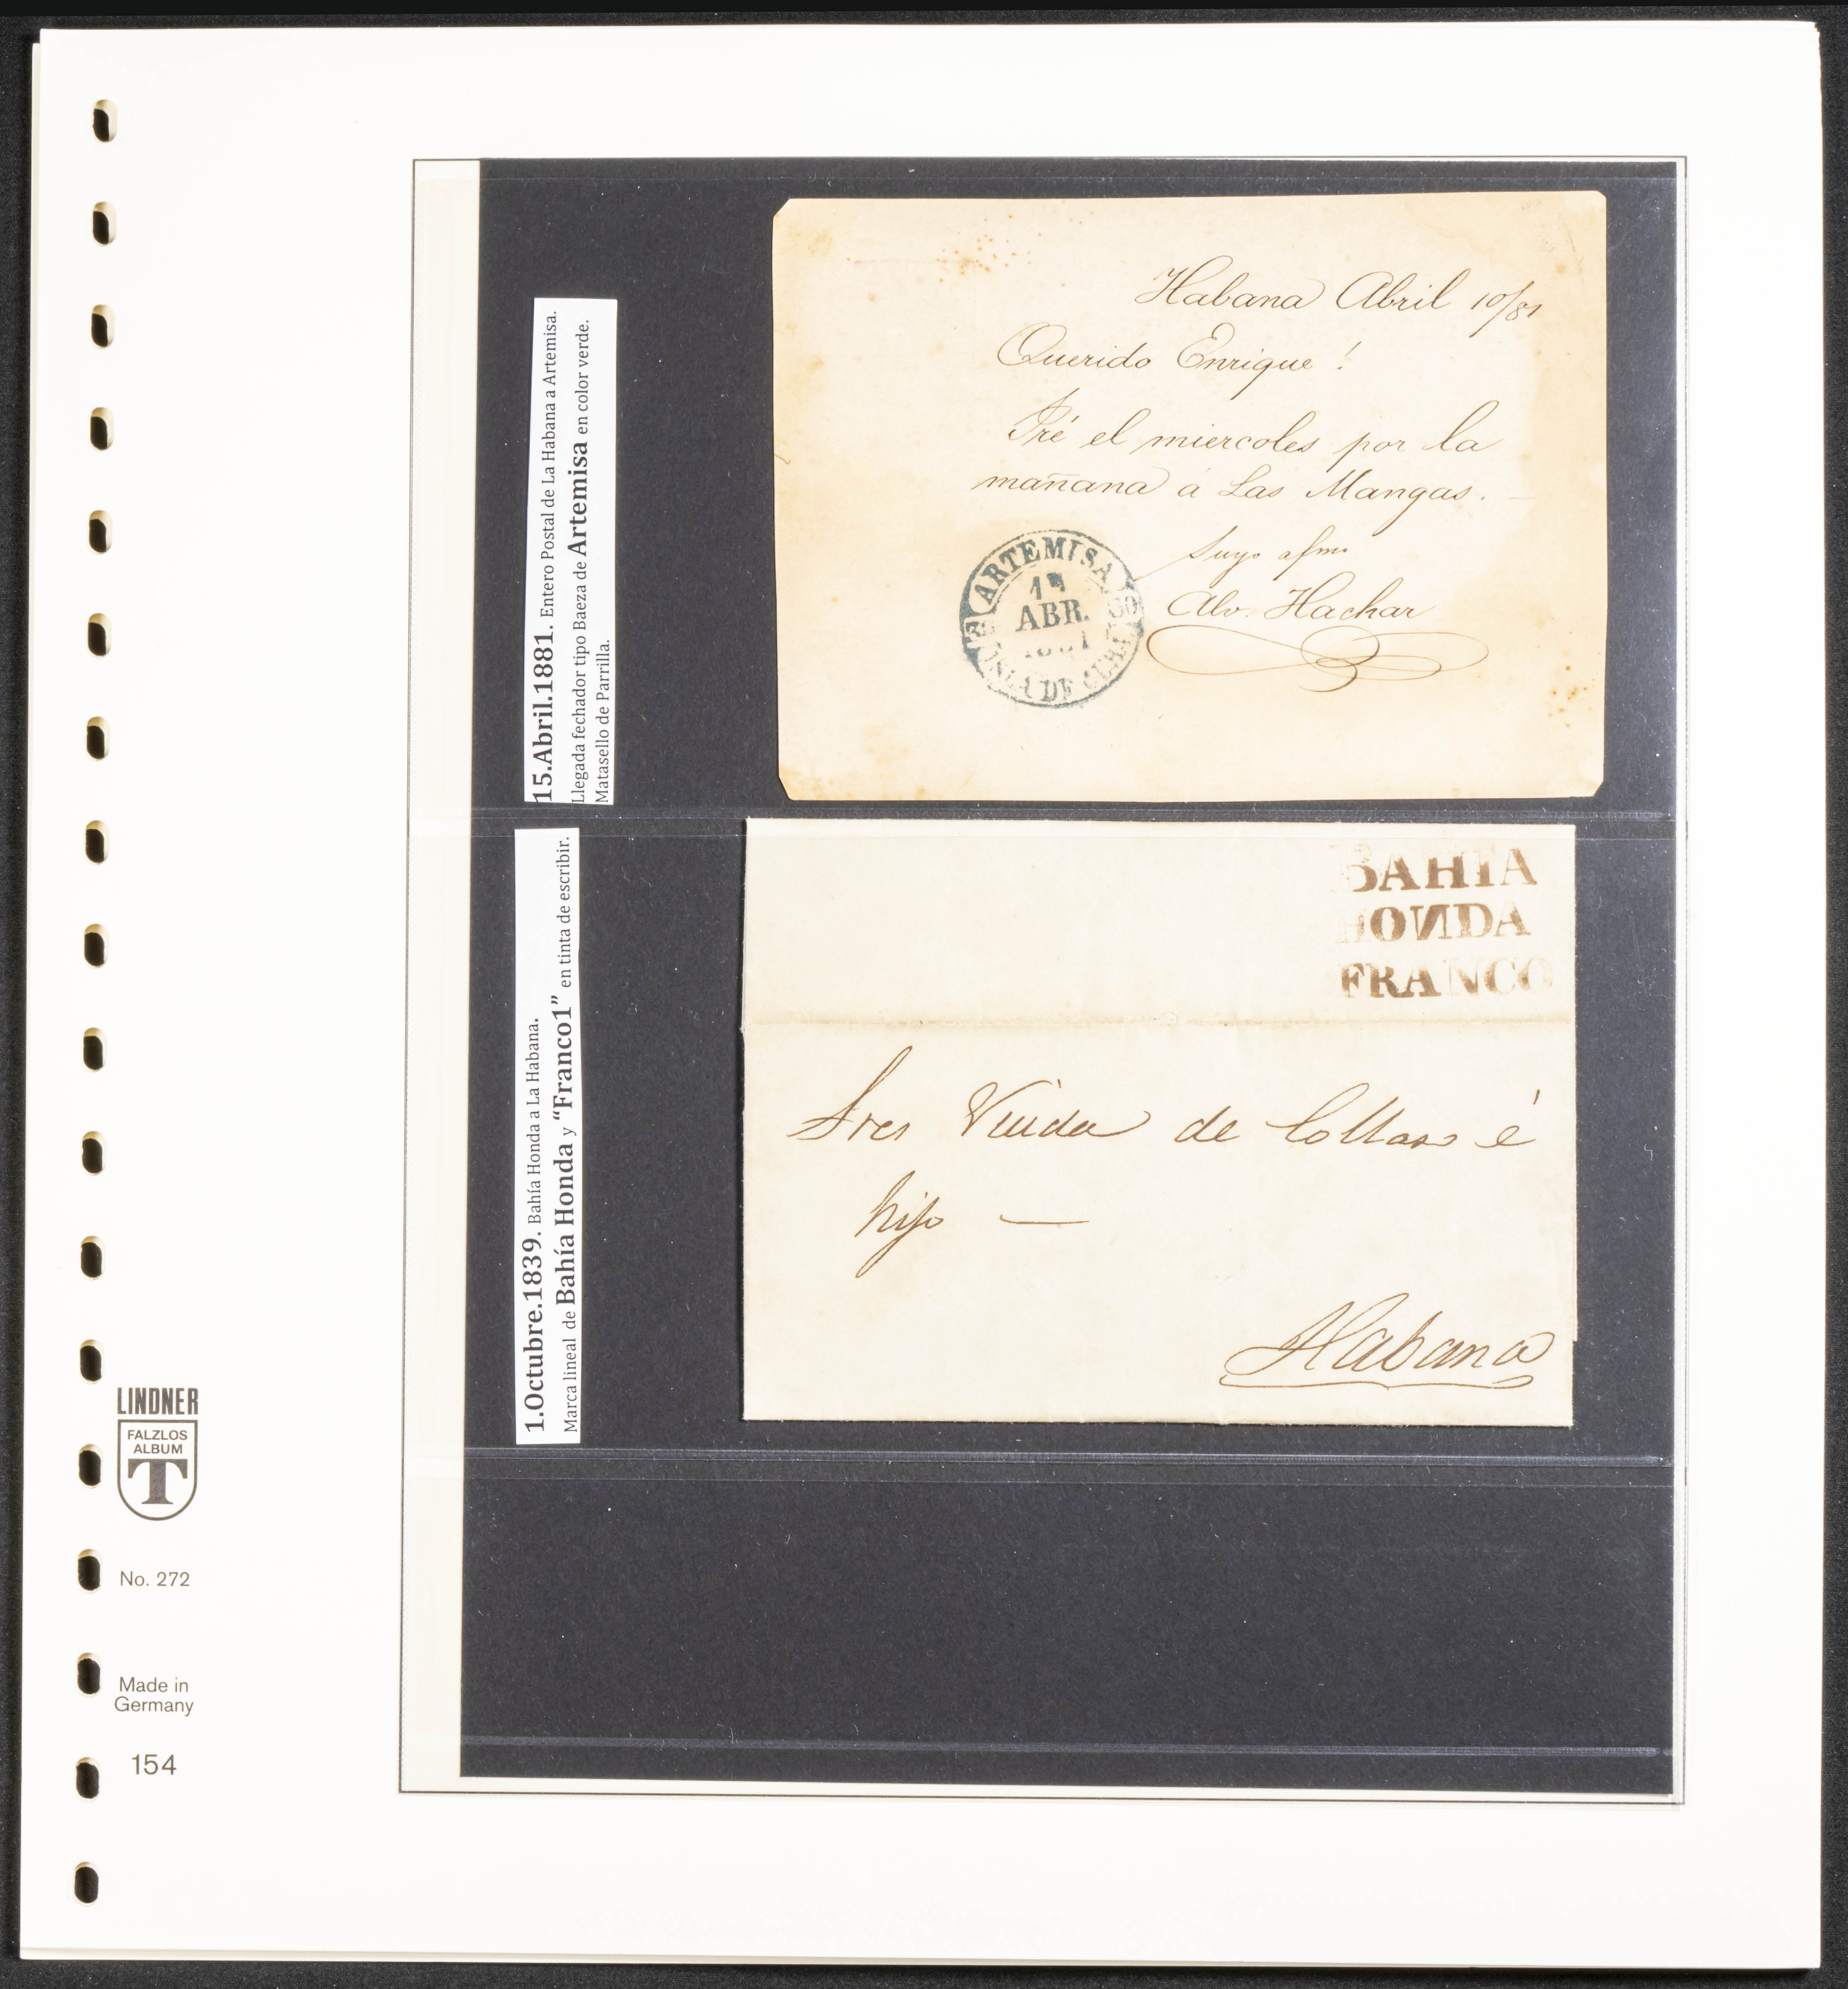 15.Abril.1881. Entero Postal de La Habana a Artemisa.
Llegada fechador tipo Baeza de Artemisa en color verde.
Matasello de Parrilla.
Habana Abril 10/81
Querido Enrique!
Iré el miercoles por la
mañana á Las Mangas. —
Suyo afmo
Alv. Hachar
ARTEMISA
ABR.
ISLA DE CUBA
1.Octubre.1839. Bahía Honda a La Habana.
Marca lineal de Bahía Honda y “Franco1” en tinta de escribir.
BAHIA
HONDA
FRANCO
Sres Viuda de Collazo é
hijo —
Habana
LINDNER
FALZLOS
ALBUM
T
No. 272
Made in
Germany
154